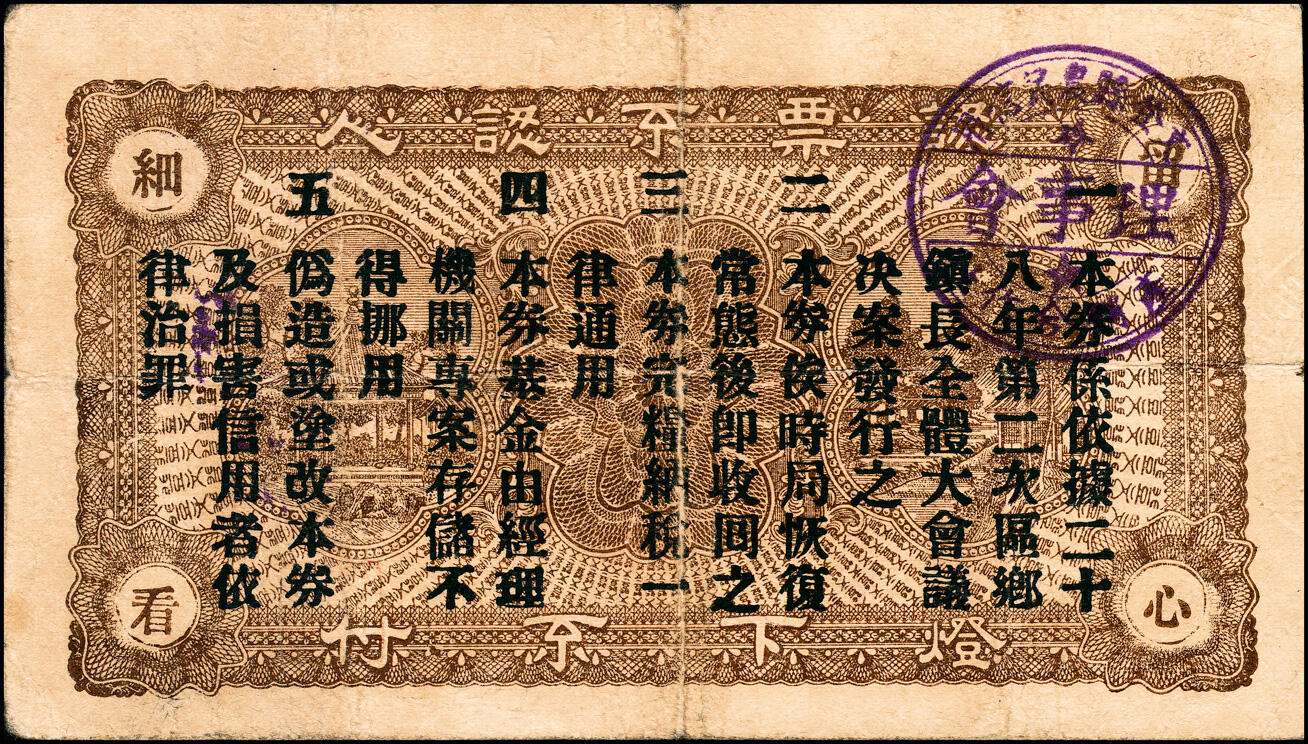 認票不認人
留
心
細
看
一
本券係依據二十
八年第二次區鄉
鎮長全體大會議
決案發行之
二
本券俟時局恢復
常態後即收回之
三
本券完糧納稅一
律通用
四
本券基金由經理
機關專案存儲不
得挪用
五
偽造或塗改本券
及損害信用者依
律治罪
燈下不付
理事會